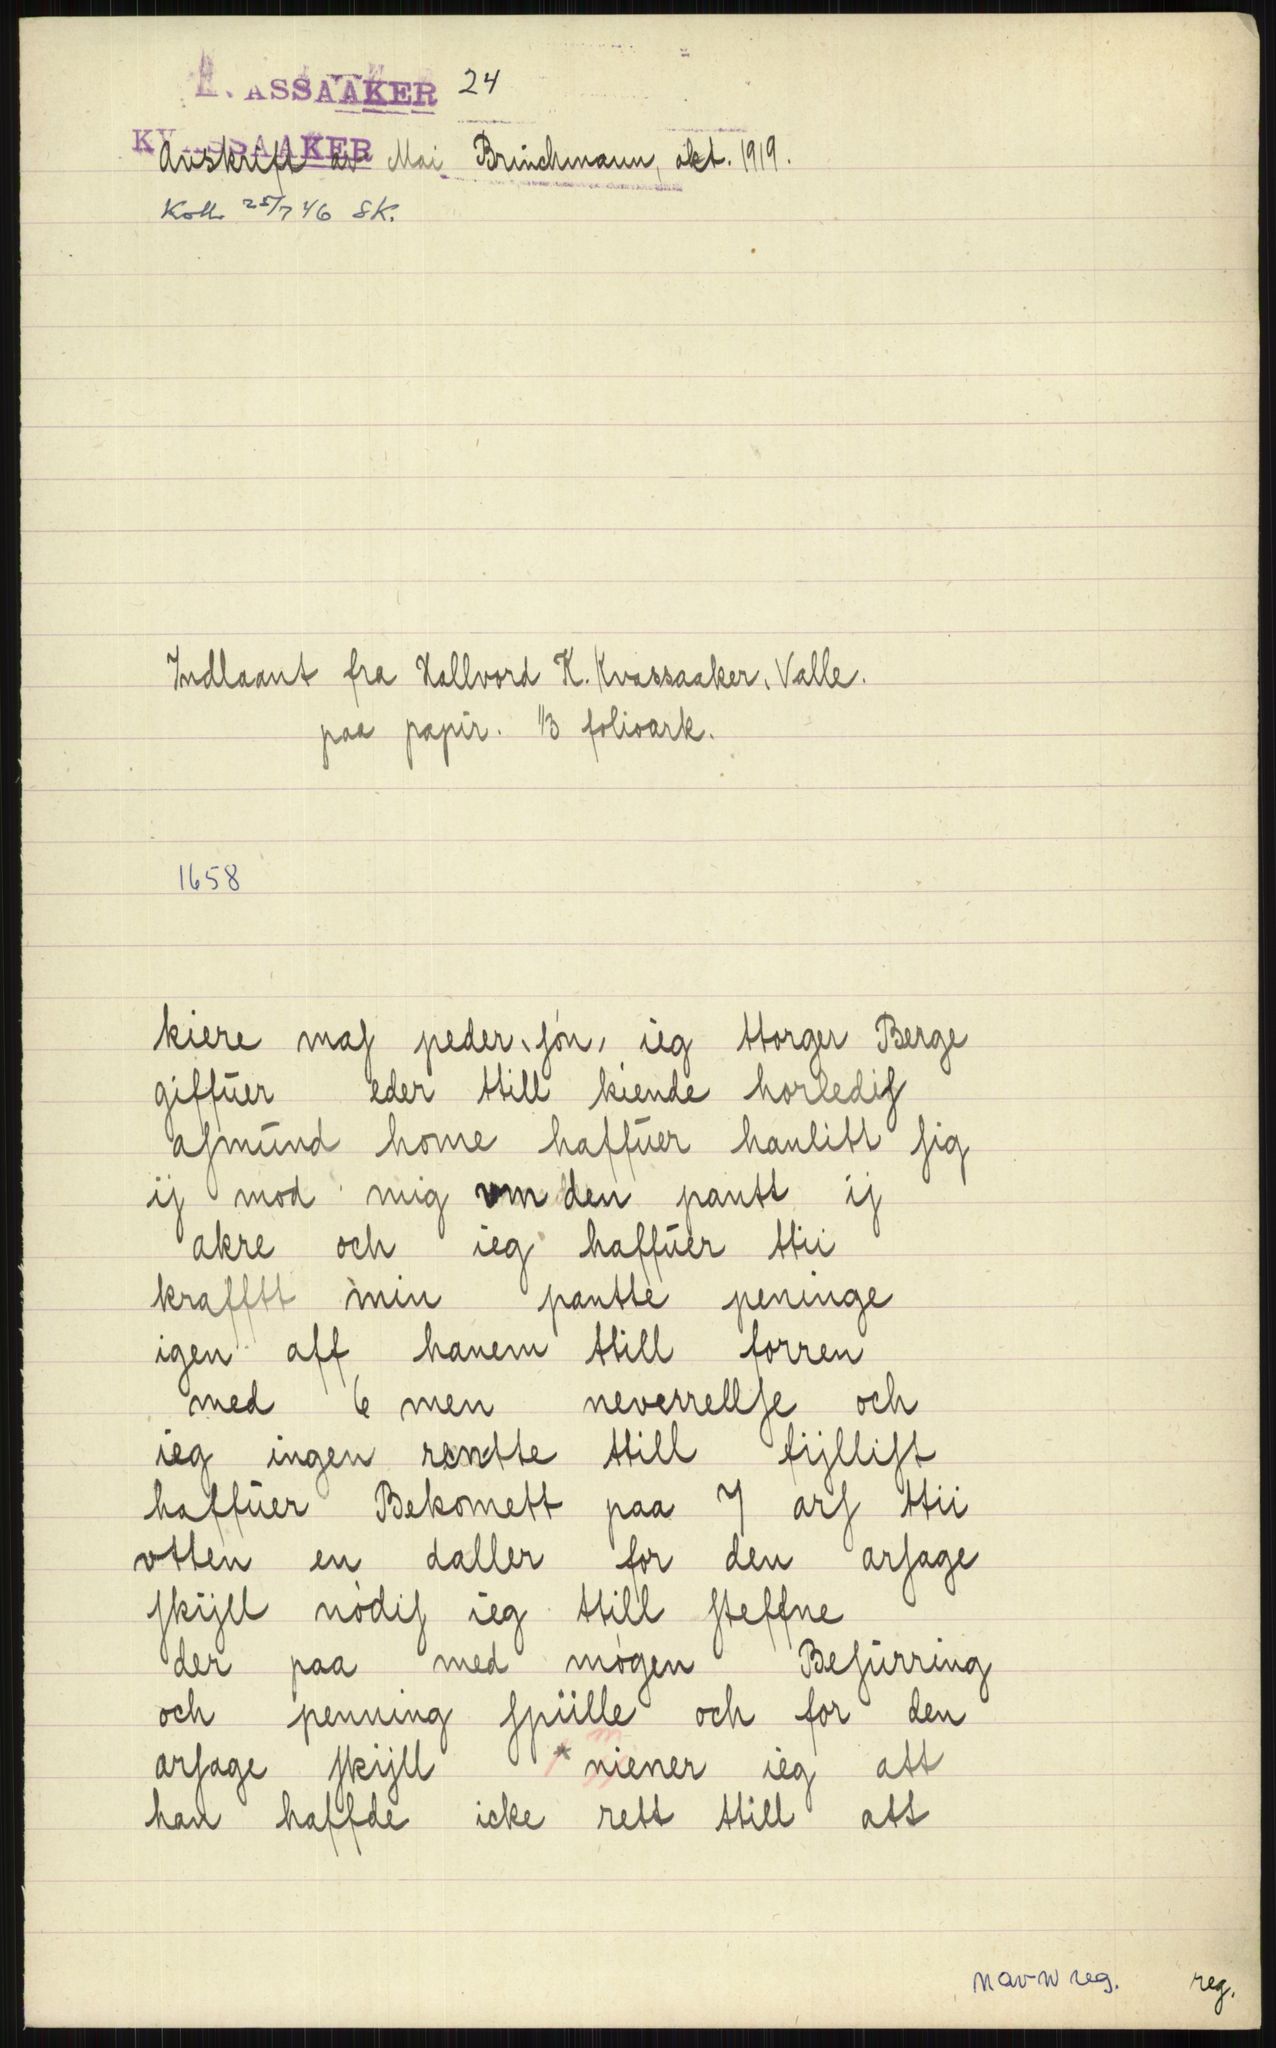 KVASSAAKER 24
KVASSAAKER
Avskrift av Mai Brinchmann, okt. 1919.
Koll. 25/7 46 SK.
Indlaant fra Hallvord K. Kvassaaker, Valle.
paa papir. 1/3 folioark.
1658
kiere maſ peder, ſón, ieg ttorger Berge
giffúer eder ttill kiende horlediſ
aſmúnd home haffúer hanlitt ſig
ij mod mig vm den pantt ij
akre och ieg haffúer ttii
krafftt min pantte peninge
igen aff hanem ttill forren
med 6 men neverrellſe och
ieg ingen rentte ttill fijlliſt
haffúer Bekomett paa 7 arſ ttii
vtten en daller for den arſage
ſkijll nòdiſ ieg ttill ſteffne
der paa med mògen Beſúrring
och penning ſpiille och for den
arſage ſkijll * niener ieg att
m
han haffde icke rett ttill att
navn reg. reg.